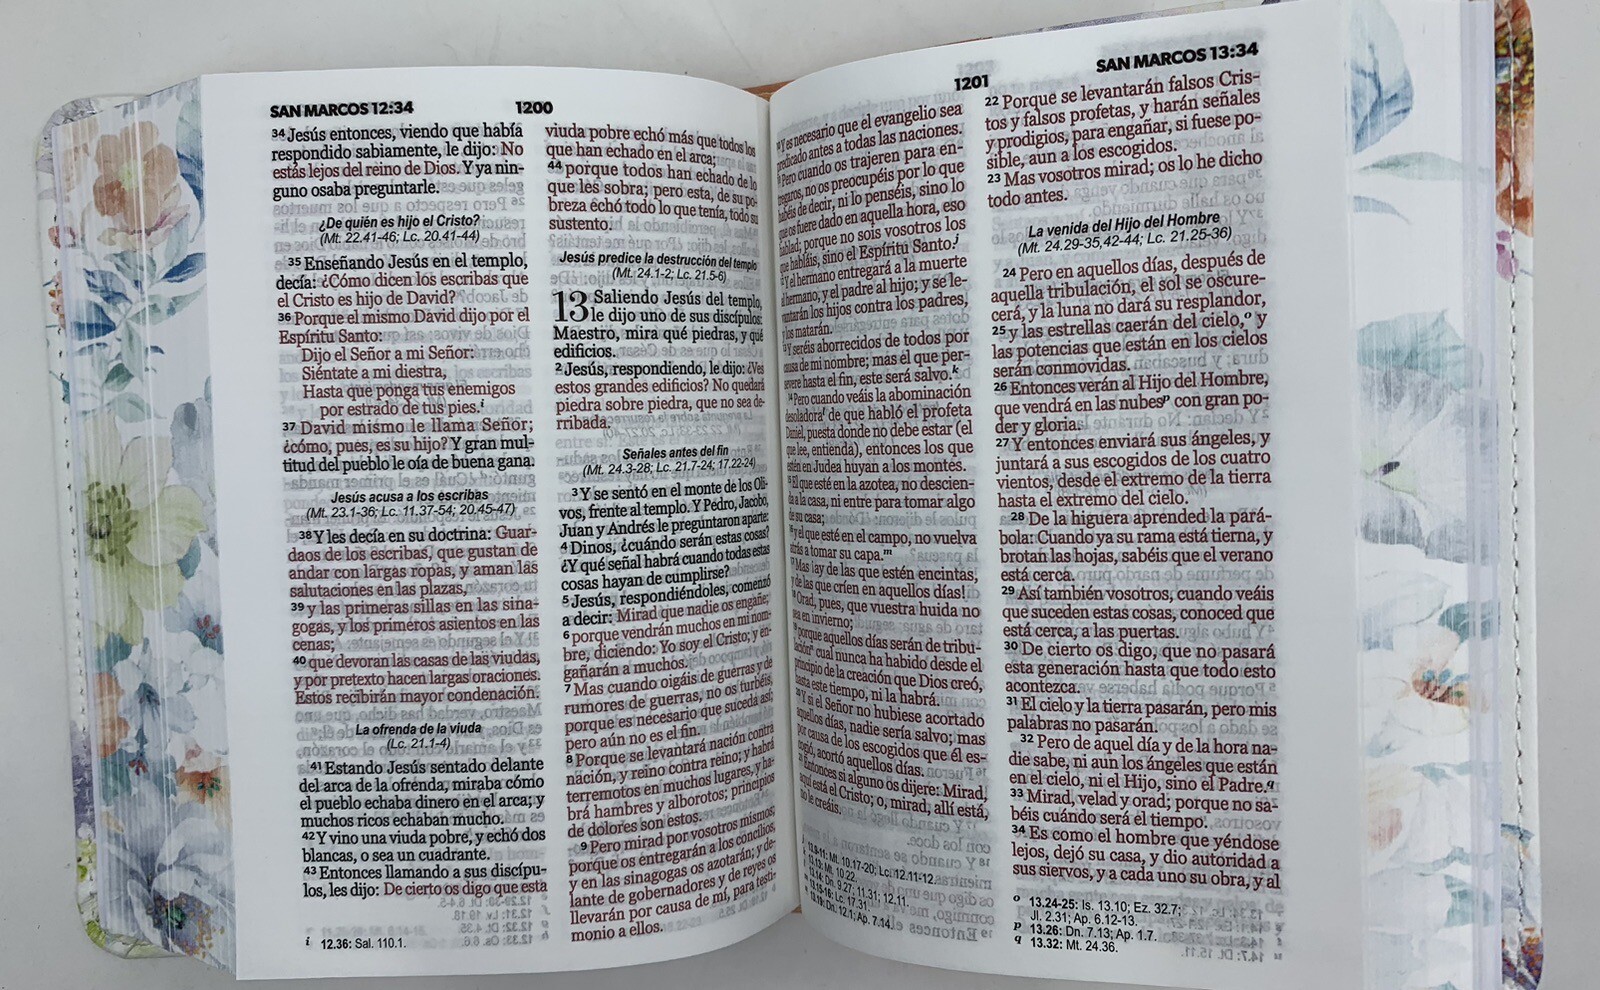 SAN MARCOS 12:34
1200
34 Jesús entonces, viendo que había
respondido sabiamente, le dijo: No
estás lejos del reino de Dios. Y ya nin-
guno osaba preguntarle.
¿De quién es hijo el Cristo?
(Mt. 22.41-46; Lc. 20.41-44)
35 Enseñando Jesús en el templo,
decía: ¿Cómo dicen los escribas que
el Cristo es hijo de David?
36 Porque el mismo David dijo por el
Espíritu Santo:
Dijo el Señor a mi Señor:
Siéntate a mi diestra,
Hasta que ponga tus enemigos
por estrado de tus pies.i
37 David mismo le llama Señor;
¿cómo, pues, es su hijo? Y gran mul-
titud del pueblo le oía de buena gana.
Jesús acusa a los escribas
(Mt. 23.1-36; Lc. 11.37-54; 20.45-47)
38 Y les decía en su doctrina: Guar-
daos de los escribas, que gustan de
andar con largas ropas, y aman las
salutaciones en las plazas,
39 y las primeras sillas en las sina-
gogas, y los primeros asientos en las
cenas;
40 que devoran las casas de las viudas,
y por pretexto hacen largas oraciones.
Estos recibirán mayor condenación.
La ofrenda de la viuda
(Lc. 21.1-4)
41 Estando Jesús sentado delante
del arca de la ofrenda, miraba cómo
el pueblo echaba dinero en el arca; y
muchos ricos echaban mucho.
42 Y vino una viuda pobre, y echó dos
blancas, o sea un cuadrante.
43 Entonces llamando a sus discípu-
los, les dijo: De cierto os digo que esta
i 12.36: Sal. 110.1.
viuda pobre echó más que todos los
que han echado en el arca;
44 porque todos han echado de lo
que les sobra; pero esta, de su po-
breza echó todo lo que tenía, todo su
sustento.
Jesús predice la destrucción del templo
(Mt. 24.1-2; Lc. 21.5-6)
13 Saliendo Jesús del templo,
le dijo uno de sus discípulos:
Maestro, mira qué piedras, y qué
edificios.
2 Jesús, respondiendo, le dijo: ¿Ves
estos grandes edificios? No quedará
piedra sobre piedra, que no sea de-
rribada.
Señales antes del fin
(Mt. 24.3-28; Lc. 21.7-24; 17.22-24)
3 Y se sentó en el monte de los Oli-
vos, frente al templo. Y Pedro, Jacobo,
Juan y Andrés le preguntaron aparte:
4 Dinos, ¿cuándo serán estas cosas?
¿Y qué señal habrá cuando todas estas
cosas hayan de cumplirse?
5 Jesús, respondiéndoles, comenzó
a decir: Mirad que nadie os engañe;
6 porque vendrán muchos en mi nom-
bre, diciendo: Yo soy el Cristo; y en-
gañarán a muchos.
7 Mas cuando oigáis de guerras y de
rumores de guerras, no os turbéis,
porque es necesario que suceda así;
pero aún no es el fin.
8 Porque se levantará nación contra
nación, y reino contra reino; y habrá
terremotos en muchos lugares, y ha-
brá hambres y alborotos; principios
de dolores son estos.
9 Pero mirad por vosotros mismos;
porque os entregarán a los concilios,
y en las sinagogas os azotarán; y de-
lante de gobernadores y de reyes os
llevarán por causa de mí, para testi-
monio a ellos.
1201
SAN MARCOS 13:34
Y es necesario que el evangelio sea
predicado antes a todas las naciones.
Pero cuando os trajeren para en-
tregaros, no os preocupéis por lo que
habéis de decir, ni lo penséis, sino lo
que os fuere dado en aquella hora, eso
hablad; porque no sois vosotros los
que habláis, sino el Espíritu Santo.j
Y el hermano entregará a la muerte
al hermano, y el padre al hijo; y se le-
vantarán los hijos contra los padres,
y los matarán.
Y seréis aborrecidos de todos por
causa de mi nombre; mas el que per-
severe hasta el fin, este será salvo.k
14 Pero cuando veáis la abominación
desoladoral de que habló el profeta
Daniel, puesta donde no debe estar (el
que lee, entienda), entonces los que
estén en Judea huyan a los montes.
El que esté en la azotea, no descien-
da a la casa, ni entre para tomar algo
de su casa;
y el que esté en el campo, no vuelva
atrás a tomar su capa.m
Mas ¡ay de las que estén encintas,
y de las que críen en aquellos días!
Orad, pues, que vuestra huida no
sea en invierno;
porque aquellos días serán de tribu-
laciónn cual nunca ha habido desde el
principio de la creación que Dios creó,
hasta este tiempo, ni la habrá.
Y si el Señor no hubiese acortado
aquellos días, nadie sería salvo; mas
por causa de los escogidos que él es-
cogió, acortó aquellos días.
Entonces si alguno os dijere: Mirad,
aquí está el Cristo; o, mirad, allí está,
no le creáis.
13.9-11: Mt. 10.17-20; Lc. 12.11-12.
13.13: Mt. 10.22.
13.14: Dn. 9.27; 11.31; 12.11.
13.15-16: Lc. 17.31.
13.19: Dn. 12.1; Ap. 7.14.
22 Porque se levantarán falsos Cris-
tos y falsos profetas, y harán señales
y prodigios, para engañar, si fuese po-
sible, aun a los escogidos.
23 Mas vosotros mirad; os lo he dicho
todo antes.
La venida del Hijo del Hombre
(Mt. 24.29-35,42-44; Lc. 21.25-36)
24 Pero en aquellos días, después de
aquella tribulación, el sol se oscure-
cerá, y la luna no dará su resplandor,
25 y las estrellas caerán del cielo,o y
las potencias que están en los cielos
serán conmovidas.
26 Entonces verán al Hijo del Hombre,
que vendrá en las nubesp con gran po-
der y gloria.
27 Y entonces enviará sus ángeles, y
juntará a sus escogidos de los cuatro
vientos, desde el extremo de la tierra
hasta el extremo del cielo.
28 De la higuera aprended la pará-
bola: Cuando ya su rama está tierna, y
brotan las hojas, sabéis que el verano
está cerca.
29 Así también vosotros, cuando veáis
que suceden estas cosas, conoced que
está cerca, a las puertas.
30 De cierto os digo, que no pasará
esta generación hasta que todo esto
acontezca.
31 El cielo y la tierra pasarán, pero mis
palabras no pasarán.
32 Pero de aquel día y de la hora na-
die sabe, ni aun los ángeles que están
en el cielo, ni el Hijo, sino el Padre.q
33 Mirad, velad y orad; porque no sa-
béis cuándo será el tiempo.
34 Es como el hombre que yéndose
lejos, dejó su casa, y dio autoridad a
sus siervos, y a cada uno su obra, y al
o 13.24-25: Is. 13.10; Ez. 32.7;
Jl. 2.31; Ap. 6.12-13.
p 13.26: Dn. 7.13; Ap. 1.7.
q 13.32: Mt. 24.36.